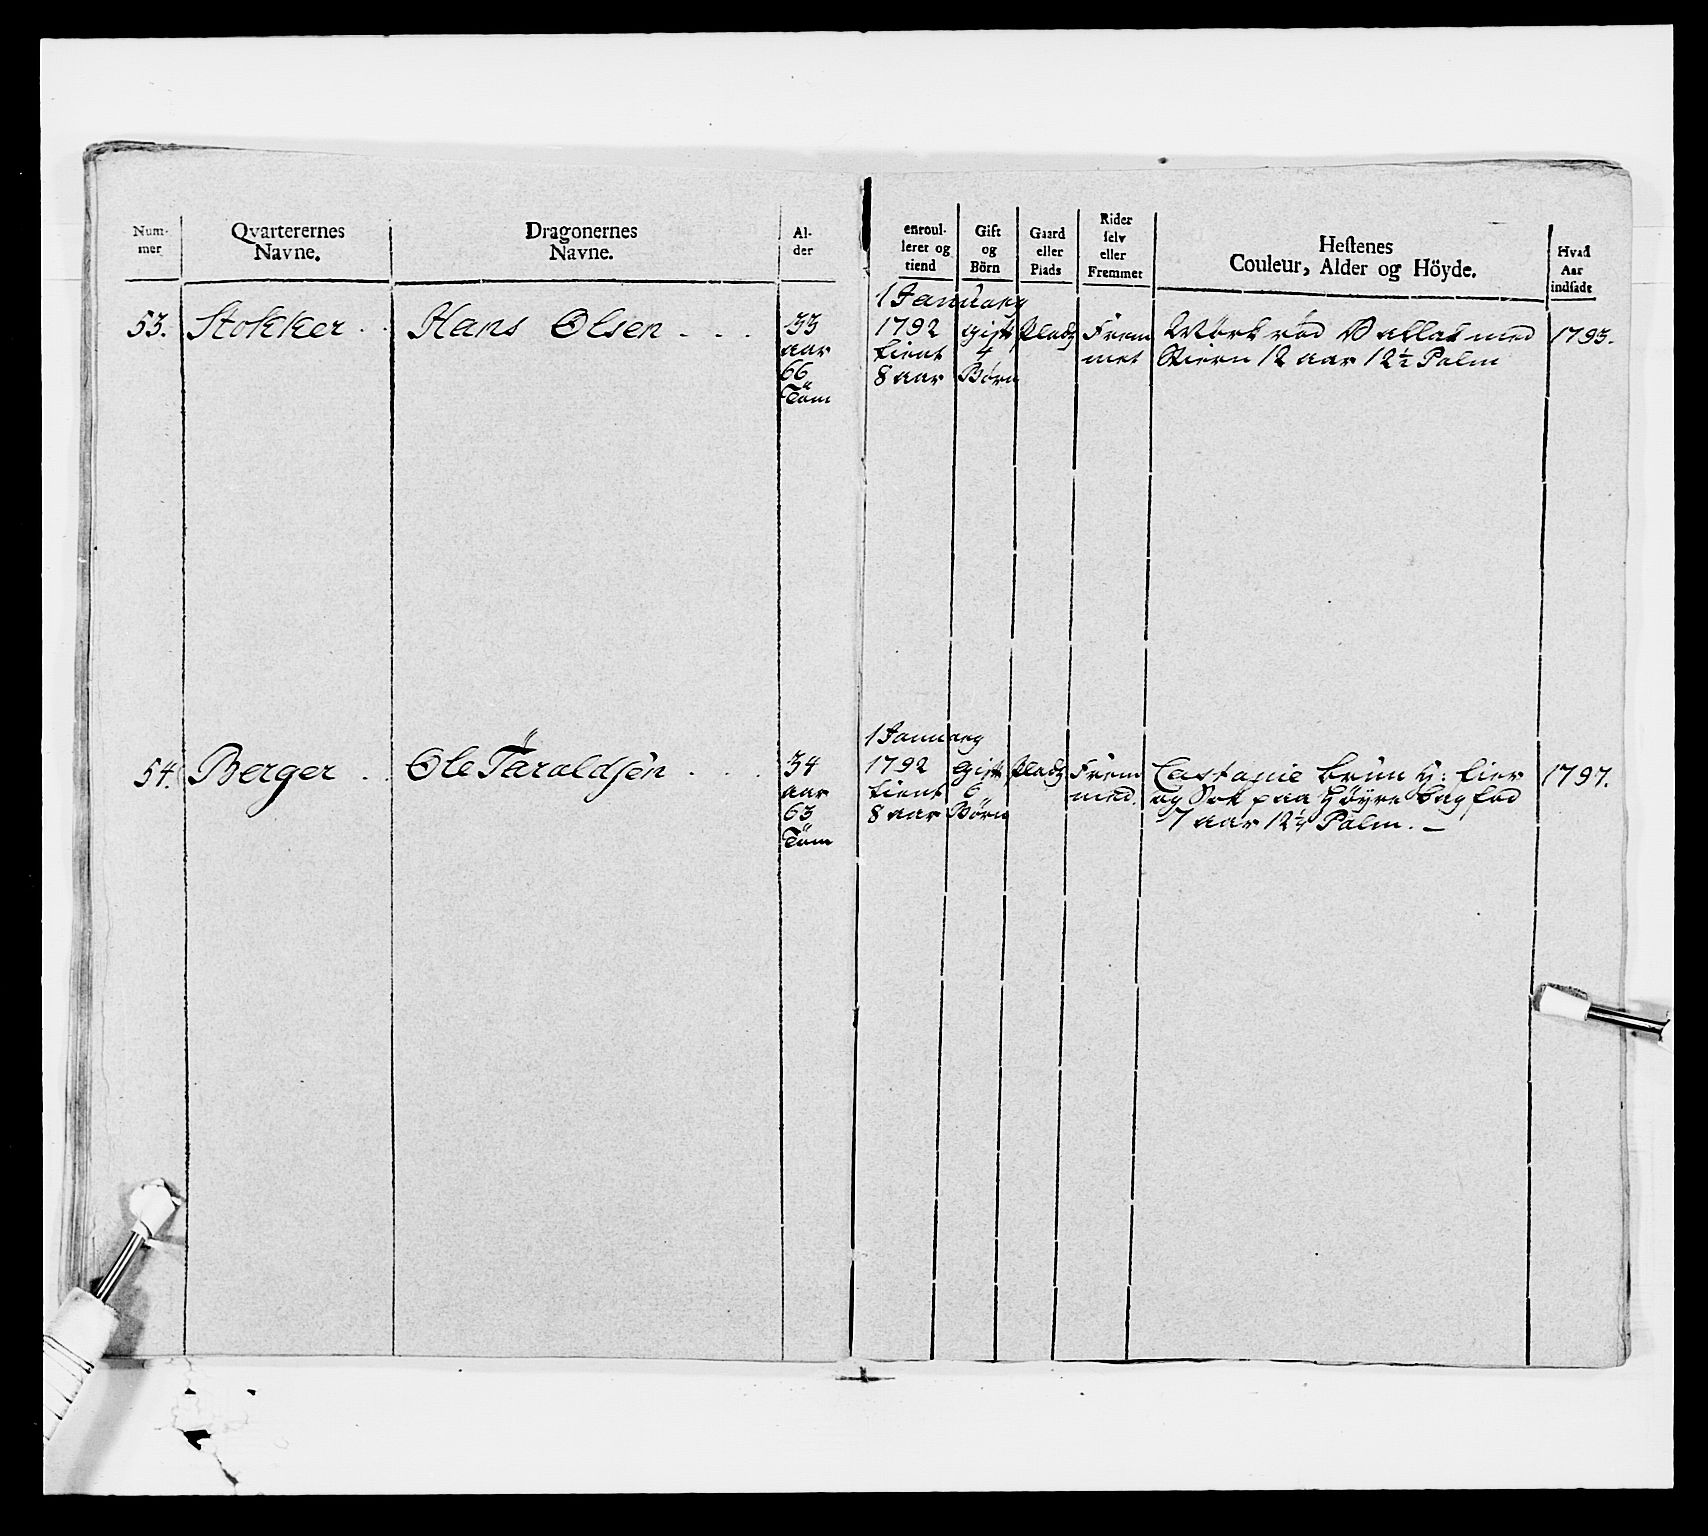 Num-
mer
Qvarterernes
Navne.
Dragonernes
Navne.
Al-
der
enroul-
leret og
tiend
Gift
og
Börn
Gaard
eller
Plads
Rider
selv
eller
Fremmet
Hestenes
Couleur, Alder og Höyde.
Hvad
Aar
indsadt
53.
Stokker
Hans Olsen
33
aar
66
Tom
1 January
1792
tient
8 aar
gift
4
Børn
Plads
Frem
met
Mörk röd Vallak med
Stiern 12 aar 12½ Palm
1793.
54.
Berger
Ole Taraldsen
34
aar
63
Tom
1 January
1792
tient
8 aar
Gift
6
Børn
Plads
Frem
med.
Castanie brun H:
og Sok paa Höyre bag fod
7 aar 12¼ Palm.
1797.